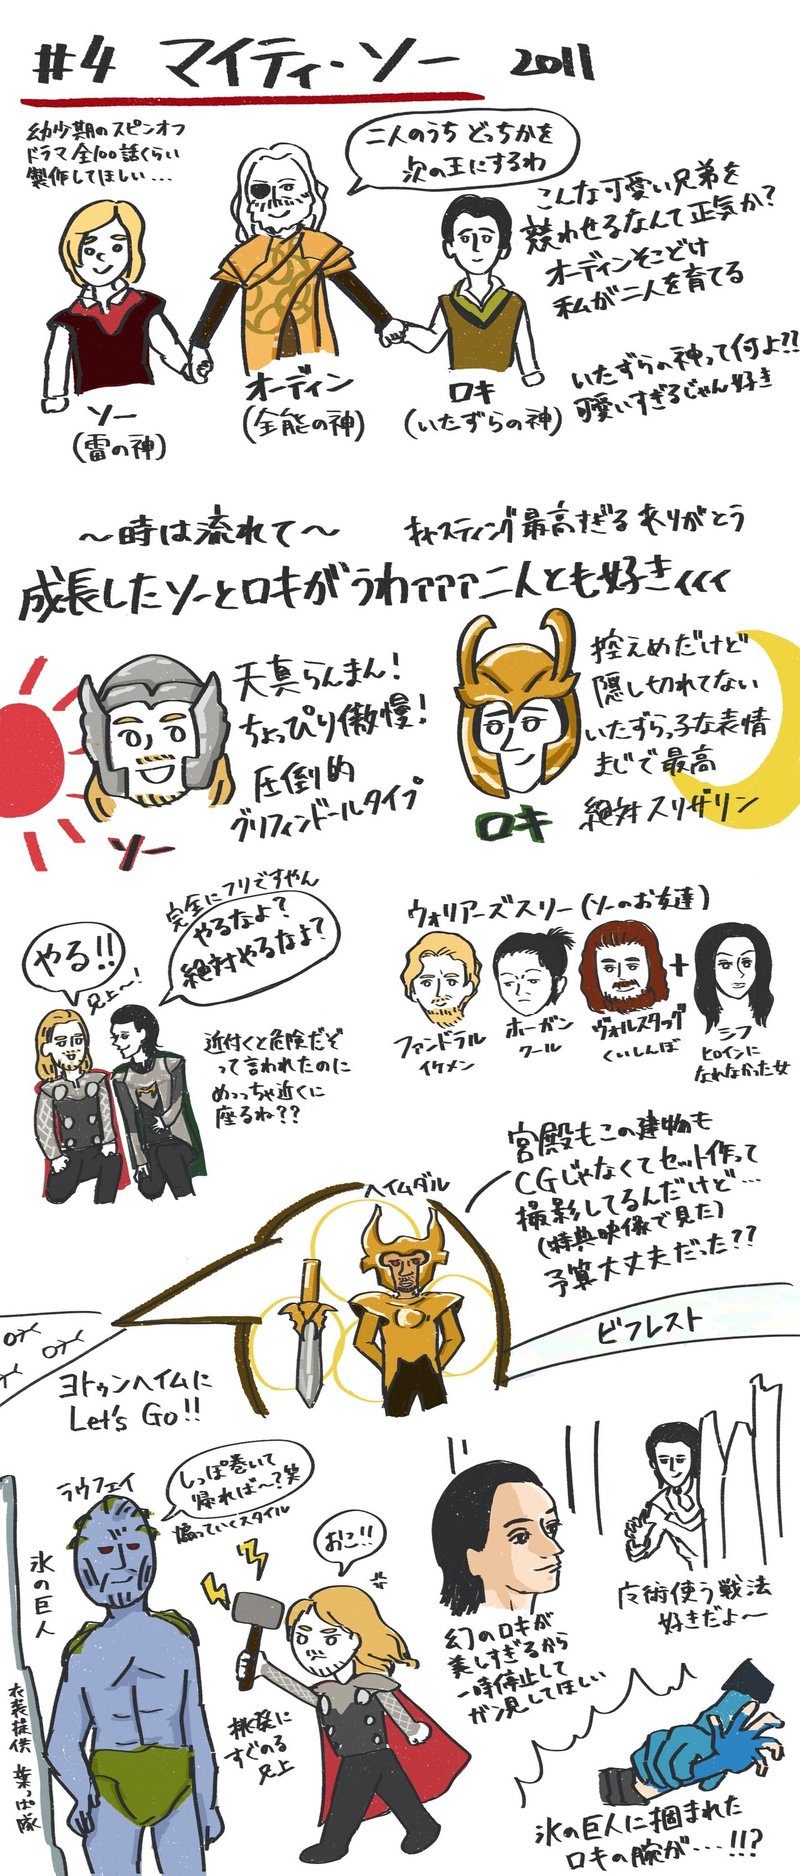 #4 マイティ・ソー 2011
幼少期のスピンオフ
ドラマ全100話くらい
製作してほしい...
二人のうち どっちかを
次の王にするわ
こんな可愛い兄弟を
競わせるなんて正気か?
オーディンそこどけ
私が二人を育てる
ソー
(雷の神)
オーディン
(全能の神)
ロキ
(いたずらの神)
いたずらの神って何よ??
可愛いすぎるじゃん好き
〜時は流れて〜
キャスティング最高すぎるありがとう
成長したソーとロキがうわァァァ二人とも好きィィィ
天真らんまん!
ちょっぴり傲慢!
圧倒的
グリフィンドールタイプ
ソー
控えめだけど
隠し切れてない
いたずらっ子な表情
まじで最高
絶対スリザリン
ロキ
やる!!
兄上〜!
完全にフリですやん
やるなよ?
絶対やるなよ?
近付くと危険だぞ
って言われたのに
めっちゃ近くに
座るね??
ウォリアーズスリー(ソーのお友達)
ファンドラル
イケメン
ホーガン
クール
ヴォルスタッグ
くいしんぼ
+
シフ
ヒロインに
なれなかった女
宮殿もこの建物も
CGじゃなくてセット作って
撮影してるんだけど...
(特典映像で見た)
予算大丈夫だった??
ヘイムダル
ビフレスト
ヨトゥンヘイムに
Let's Go!!
ラウフェイ
しっぽ巻いて
帰れば〜?笑
煽っていくスタイル
氷の巨人
衣装提供 葉っぱ隊
おこ!!
挑発に
すぐのる
兄上
幻のロキが
美しすぎるから
一時停止して
ガン見してほしい
魔術使う戦法
好きだよ〜
氷の巨人に掴まれた
ロキの腕が...!!?